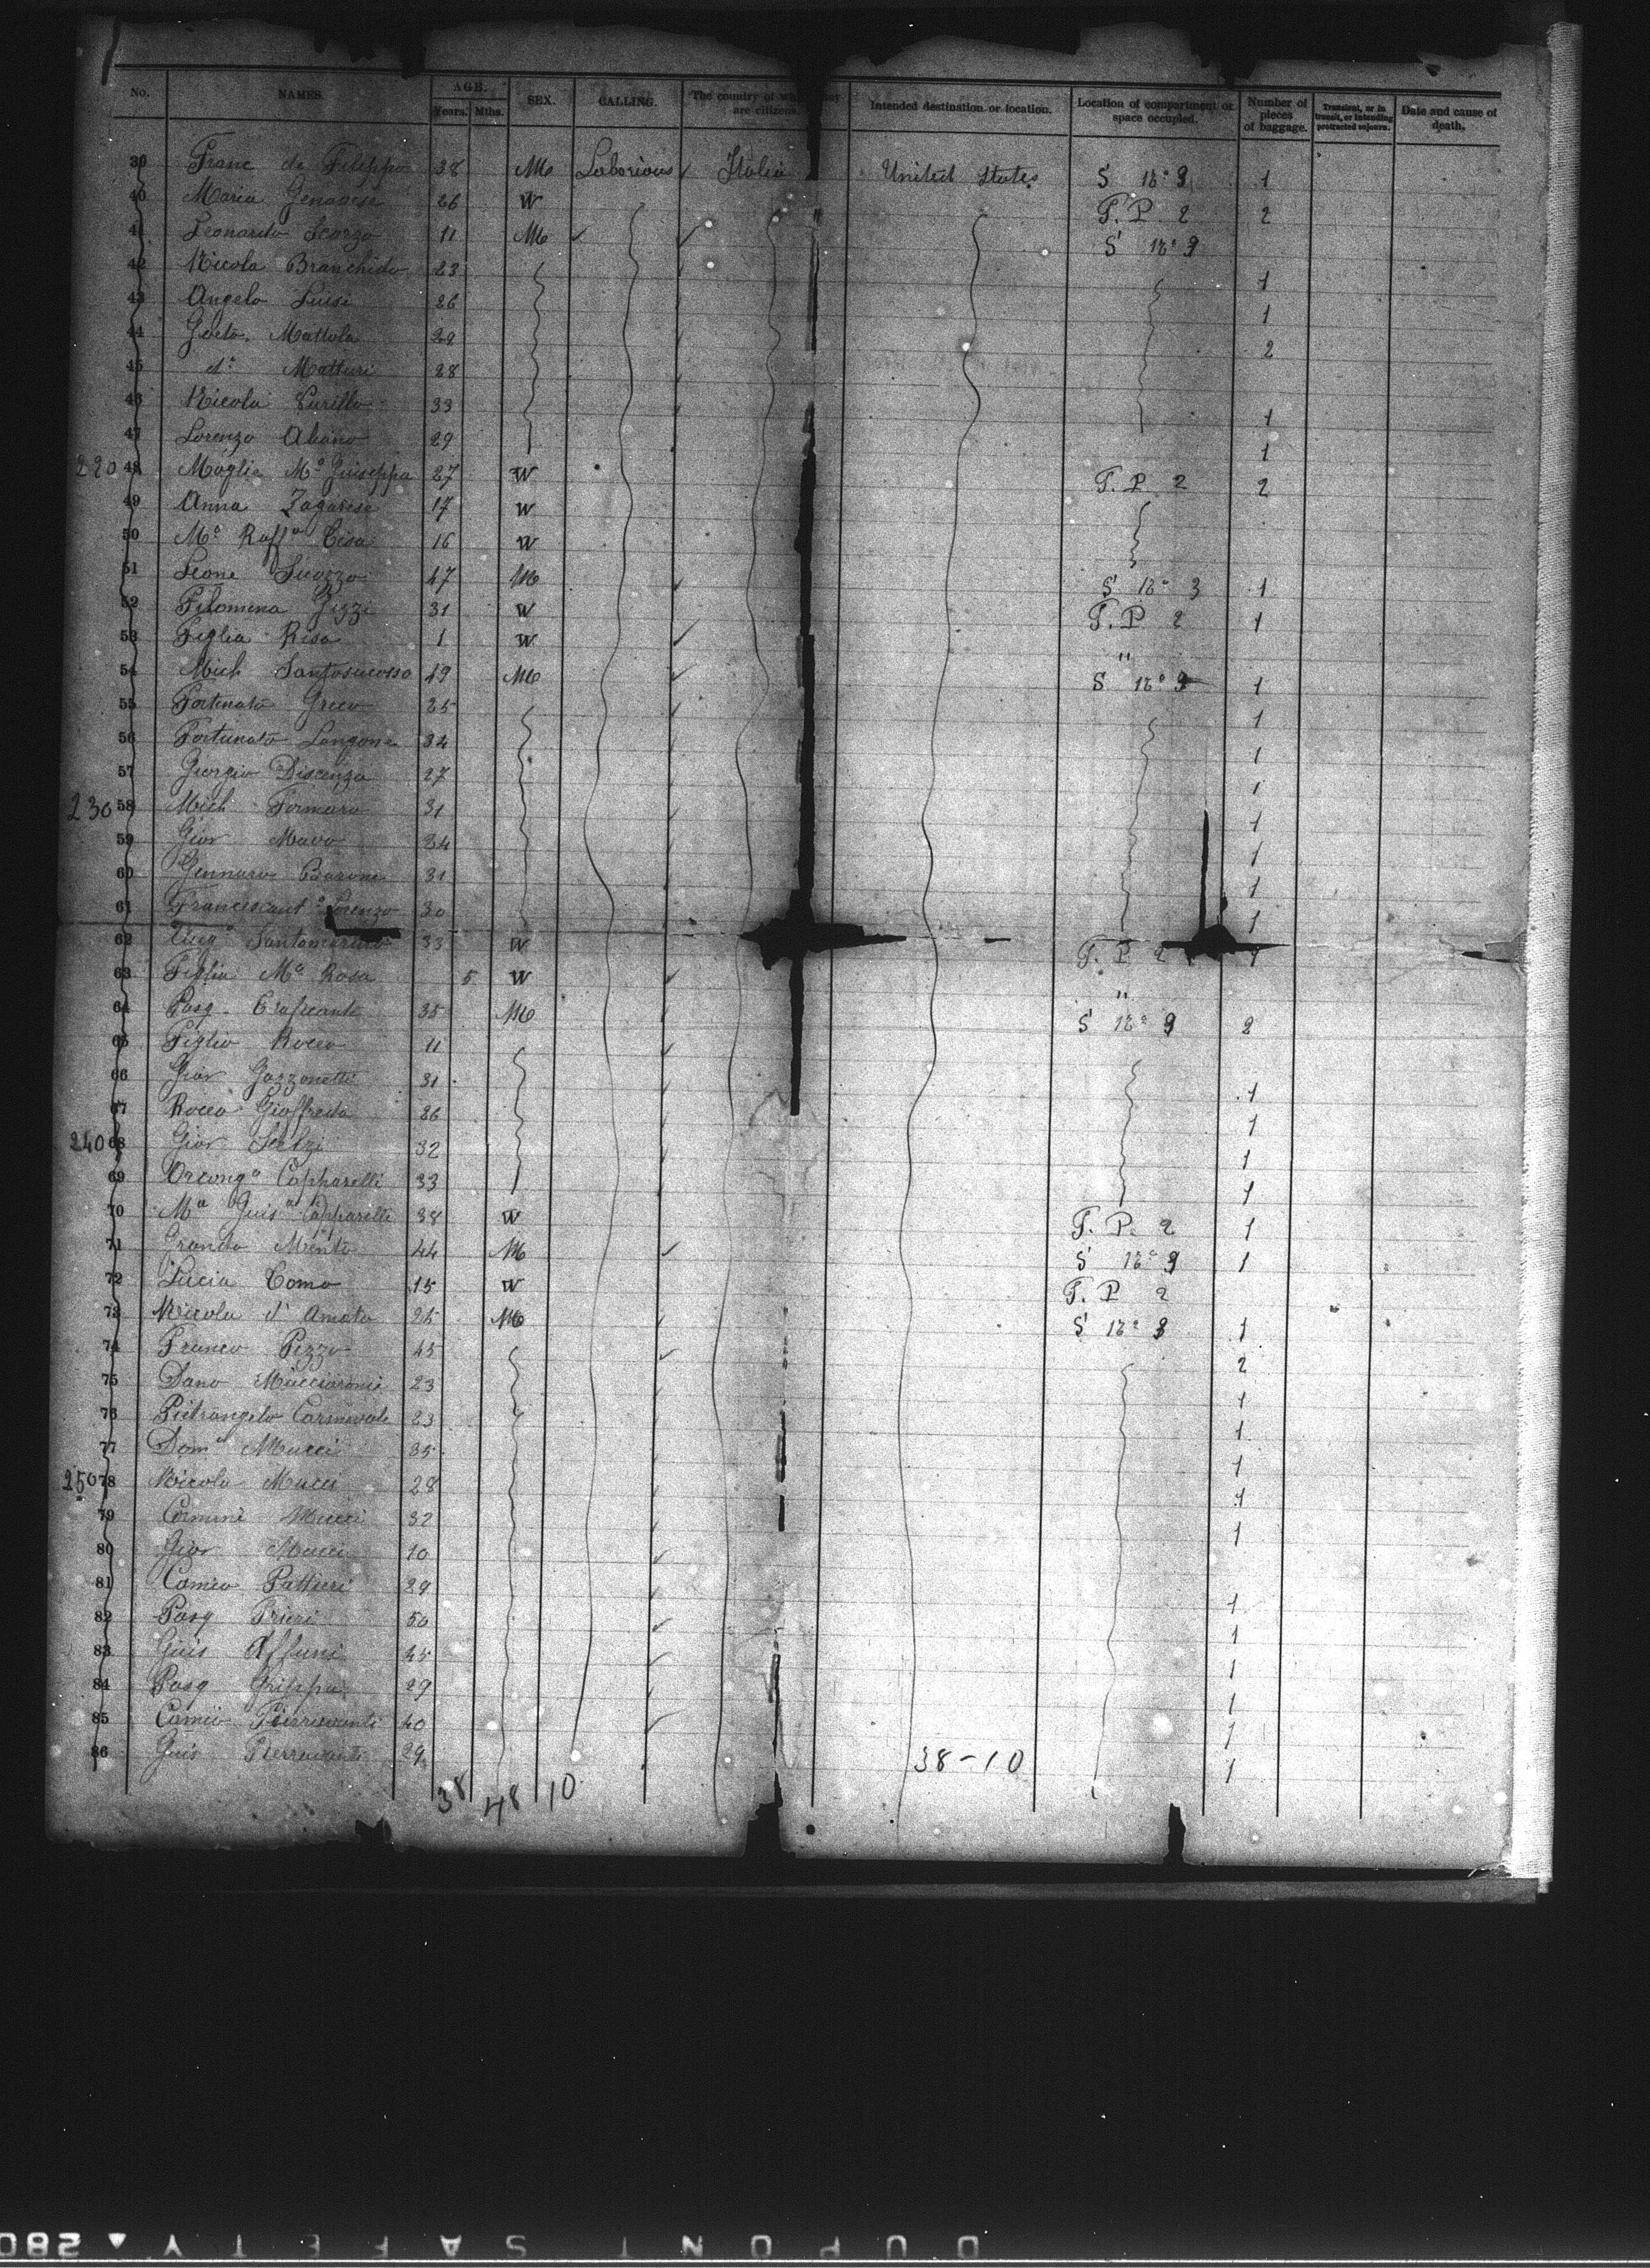 No. NAMES. AGE. Years. Mths. SEX. CALLING. The country of are citizens. Intended destination or location. Location of compartment or space occupied. Number of pieces of baggage. Transient, or in transit, or intending protracted sojourn. Date and cause of death.
39 Franc de Filippo 38 M Laborious Italia United States S No 3 1
40 Maria Genovese 26 W T. P. 2 2
41 Leonardo Scorzo 11 M S No 3
42 Nicola Branchido 23 1
43 Angelo Luisi 26 1
44 Gaeto. Mattola 29 2
45 do Matturi 28
46 Nicola 33 1
47 Lorenzo Abano 29 1
220 48 Maglia Ma Giuseppa 27 W T. P. 2 2
49 Anna Zagarese 17 W
50 Ma Raffa 16 W
51 Leone 47 M S No 3 1
52 Filomena Gizzi 31 W T. P. 2 1
53 Figlia Rosa 1 W "
54 Mich Santosuosso 49 M S No 3 1
55 Fortunato Greco 35 1
56 Fortunato Langone 34 1
57 Giorgio Discenza 27 1
230 58 Mich Formaro 31 1
59 Giov 34 1
60 Gennaro Barone 31 1
61 Lorenzo 30 1
62 33 W T. P. 2 1
63 Figlia Ma Rosa 5 W "
64 Pasq. Traficante 35 M S No 3 2
65 Figlio Rocco 11
66 Giov Gazzonetti 31 1
67 Rocco Gioffreda 36 1
240 68 Giov Scalzi 32 1
69 Capparelli 33 1
70 Ma Guisa Capparelli 38 W T. P. 2 1
71 Mento 44 M S No 3 1
72 Lucia Como 15 W T. P 2
73 Nicola d'Amato 26 M S No 3 1
74 Franco Pizzo 45 2
75 Dano Mucciaronie 23 1
76 Pietrangelo Carnevale 23 1
77 Doma Mucci 35 1
250 78 Nicola Mucci 28 1
79 Carmine Mucci 32 1
80 Giov Mucci 10
81 Pattieri 29 1
82 Pasq Frieri 50 1
83 Guis Affuni 45 1
84 Pasq Grieppa 29 1
85 40 1
86 Guis 29 1
38 48 10 38-10
DUPONT SAFETY ▲ 280